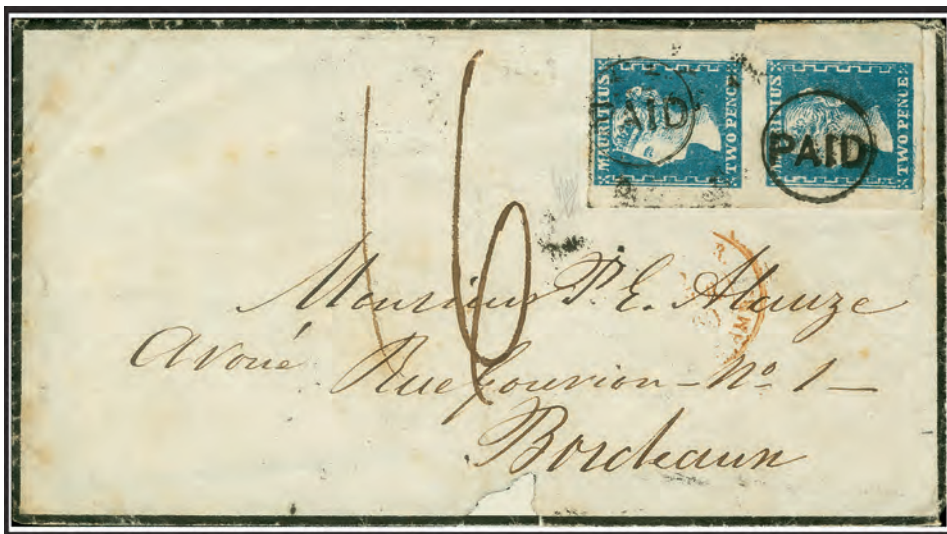 MAURITIUS
TWO PENCE
PAID
MAURITIUS
TWO PENCE
PAID
16
Monsieur P. E. Alauze
Avoué Rue Gouvion - No. 1 -
Bordeaux